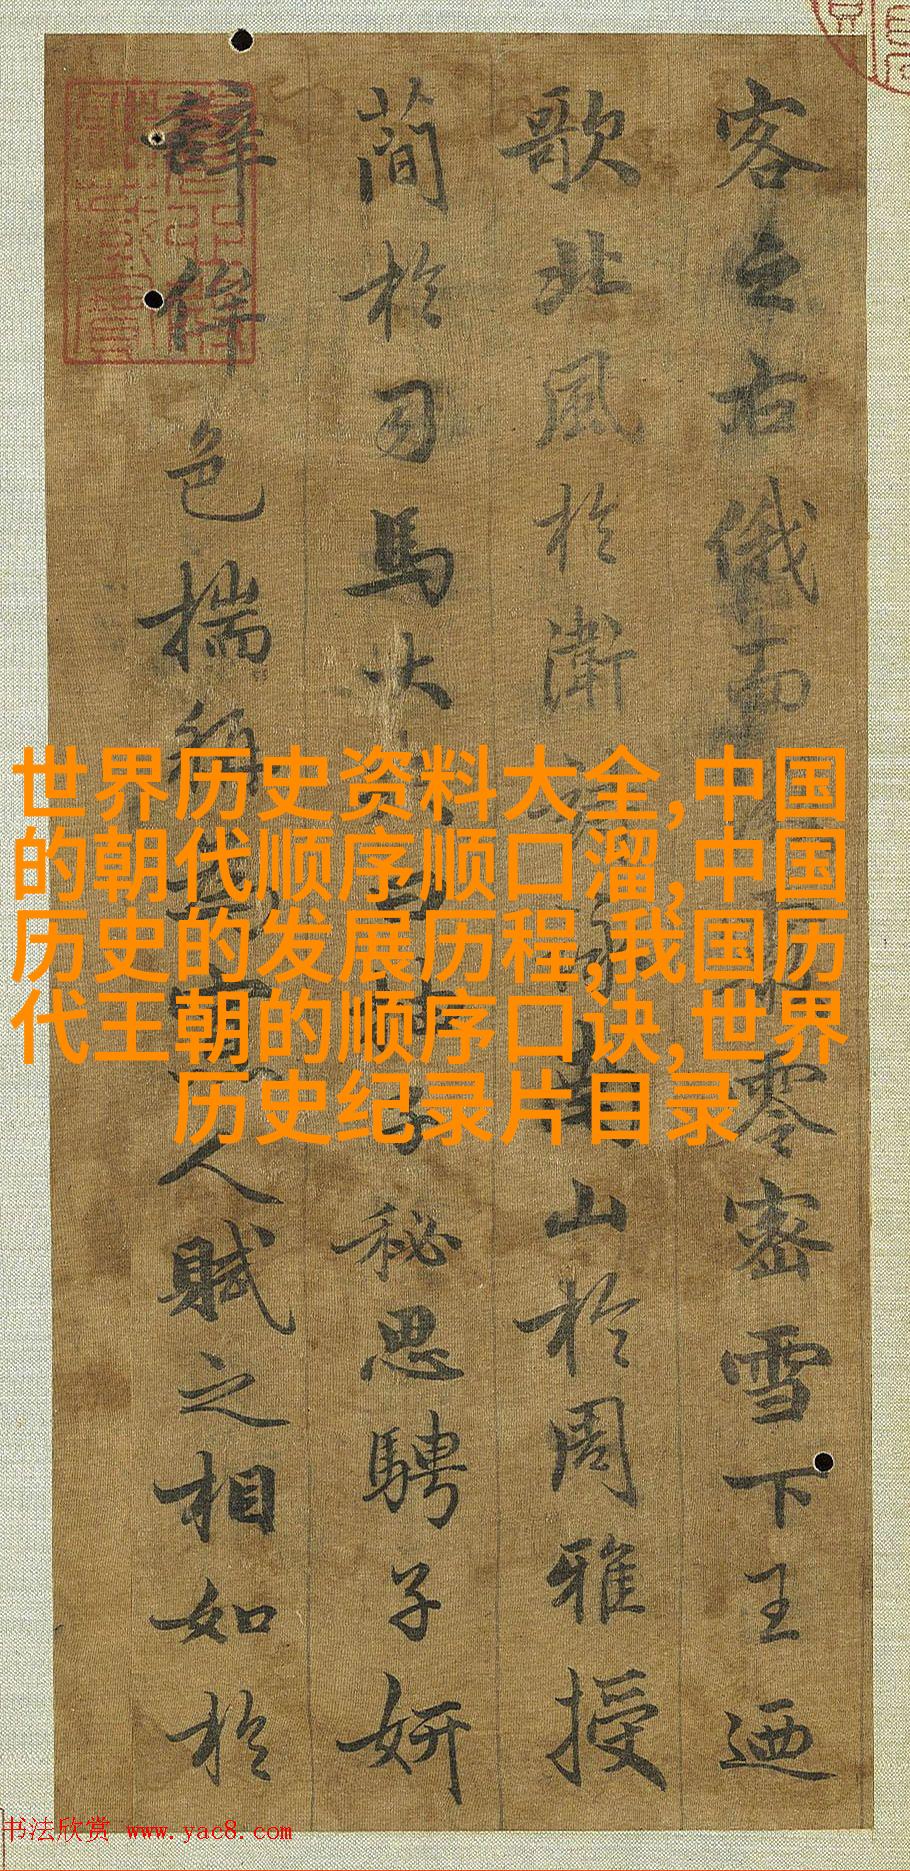 客之右俄而零密雪下王迺
歌北風於衛南山於周雅授
簡於司馬大曰子秘思騁子妍
辭侔色揣稱人賦之相如於
世界历史资料大全,中国
的朝代顺序顺口溜,中国
历史的发展历程,我国历
代王朝的顺序口诀,世界
历史纪录片目录
书法欣赏 www.yac8.com